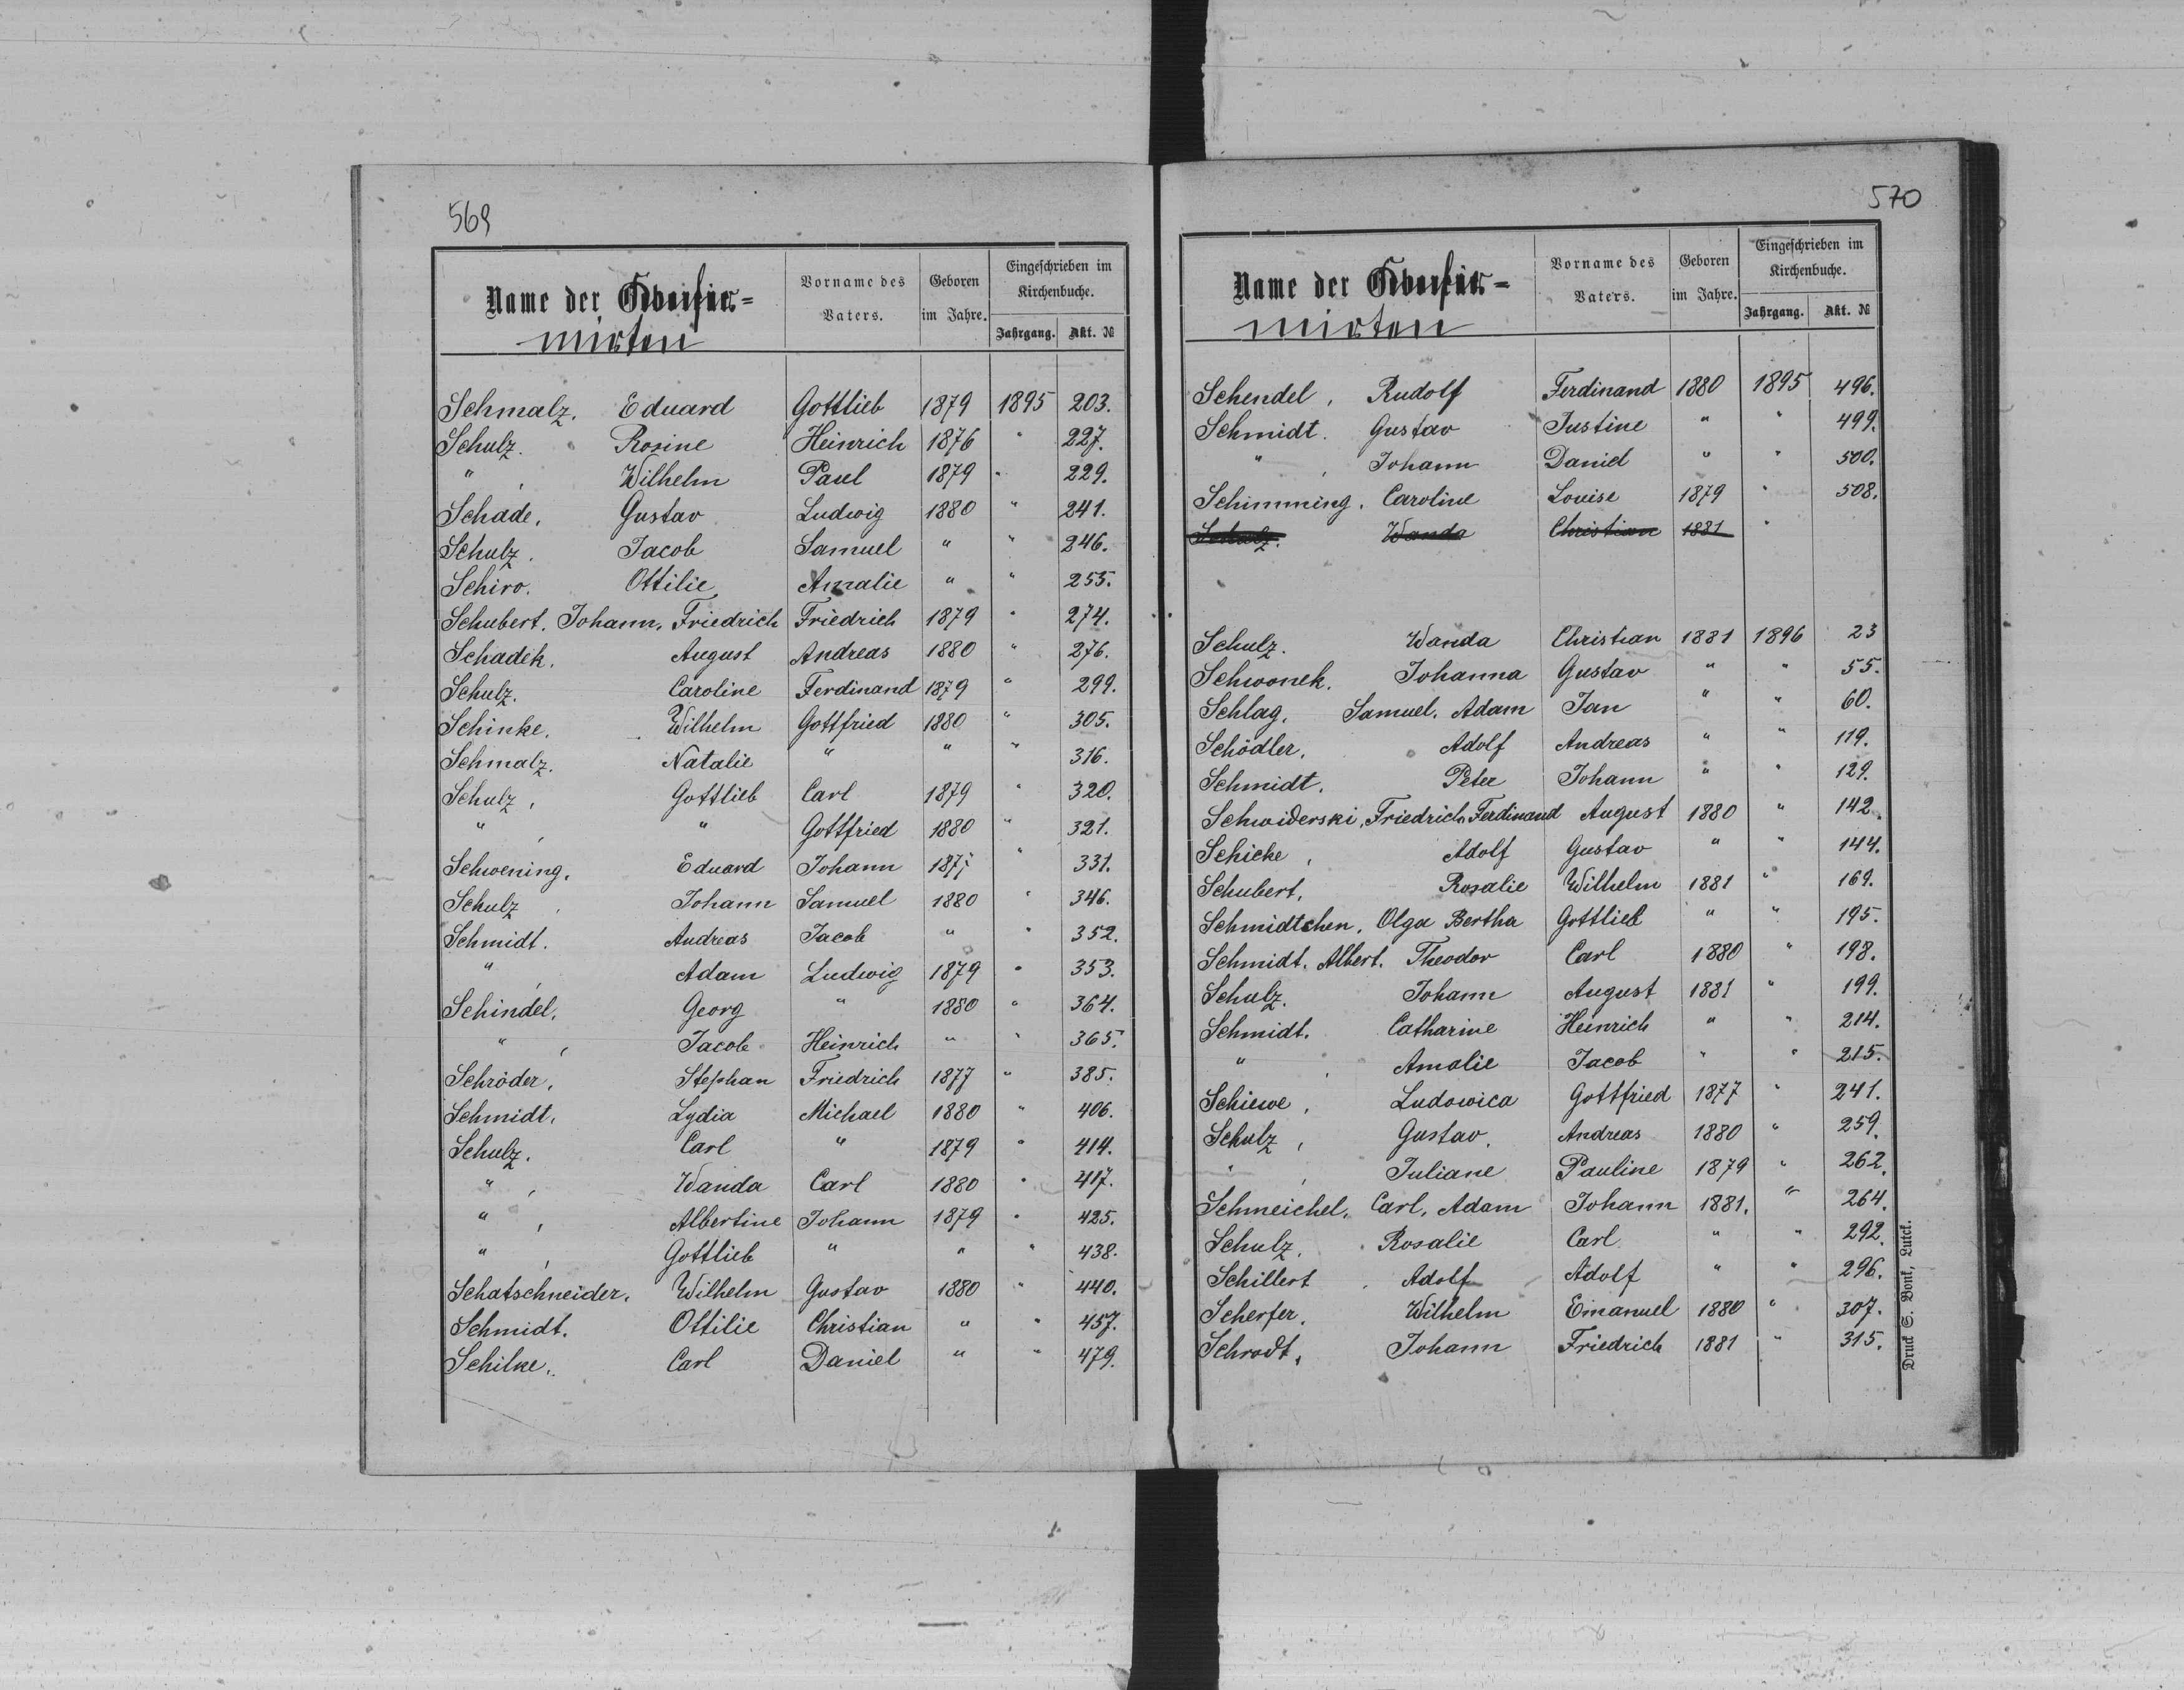 569
Name der Confir=
mirten
Vorname des Vaters.
Geboren im Jahre.
Eingeschrieben im Kirchenbuche.
Jahrgang. Akt. №
Schmalz. Eduard Gottlieb 1879 1895 203.
Schulz. Rosine Heinrich 1876 " 227.
" , Wilhelm Paul 1879 " 229.
Schade, Gustav Ludwig 1880 " 241.
Schulz. Jacob Samuel " " 246.
Schiro. Ottilie Amalie " " 255.
Schubert. Johann, Friedrich Friedrich 1879 " 274.
Schadek. August Andreas 1880 " 276.
Schulz. Caroline Ferdinand 1879 " 299.
Schinke. Wilhelm Gottfried 1880 " 305.
Schmalz. Natalie " " " 316.
Schulz, Gottlieb Carl 1879 " 320.
" , " Gottfried 1880 " 321.
Schwening. Eduard Johann " 331.
Schulz , Johann Samuel 1880 " 346.
Schmidt. Andreas Jacob " " 352.
" , Adam Ludwig 1879 " 353.
Schindel, Georg " 1880 " 364.
" , Jacob Heinrich " " 365.
Schröder, Stephan Friedrich 1877 " 385.
Schmidt, Lydia Michael 1880 " 406.
Schulz. Carl " 1879 " 414.
" , Wanda Carl 1880 " 417.
" , Albertine Johann 1879 " 425.
" , Gottlieb " " " 438.
Schatschneider. Wilhelm Gustav 1880 " 440.
Schmidt. Ottilie Christian " " 457.
Schilke. Carl Daniel " " 479.
570
Name der Confir=
mirten
Vorname des Vaters.
Geboren im Jahre.
Eingeschrieben im Kirchenbuche.
Jahrgang. Akt. №
Schendel, Rudolf Ferdinand 1880 1895 496.
Schmidt. Gustav Justine " " 499.
" , Johann Daniel " " 500.
Schimming. Caroline Louise 1879 " 508.
Schulz. Wanda Christian 1881 "
Schulz. Wanda Christian 1881 1896 23
Schwonek. Johanna Gustav " " 55.
Schlag, Samuel, Adam Jan " " 60.
Schödler, Adolf Andreas " " 119.
Schmidt, Peter Johann " " 129.
Schwiderski, Friedrich Ferdinand August 1880 " 142.
Schicke , Adolf Gustav " " 144.
Schubert, Rosalie Wilhelm 1881 " 169.
Schmidtchen, Olga Bertha Gottlieb " " 195.
Schmidt. Albert. Theodor Carl 1880 " 198.
Schulz. Johann August 1881 " 199.
Schmidt. Catharine Heinrich " " 214.
" , Amalie Jacob " " 215.
Schiewe , Ludowica Gottfried 1877 " 241.
Schulz , Gustav. Andreas 1880 " 259.
" , Juliane Pauline 1879 " 262.
Schmeichel, Carl, Adam Johann 1881. " 264.
Schulz, Rosalie Carl " " 292.
Schillert , Adolf Adolf " " 296.
Scherfer, Wilhelm Emanuel 1880 " 307.
Schrodt, Johann Friedrich 1881 " 315.
Druck S. Bonk, Lutck.